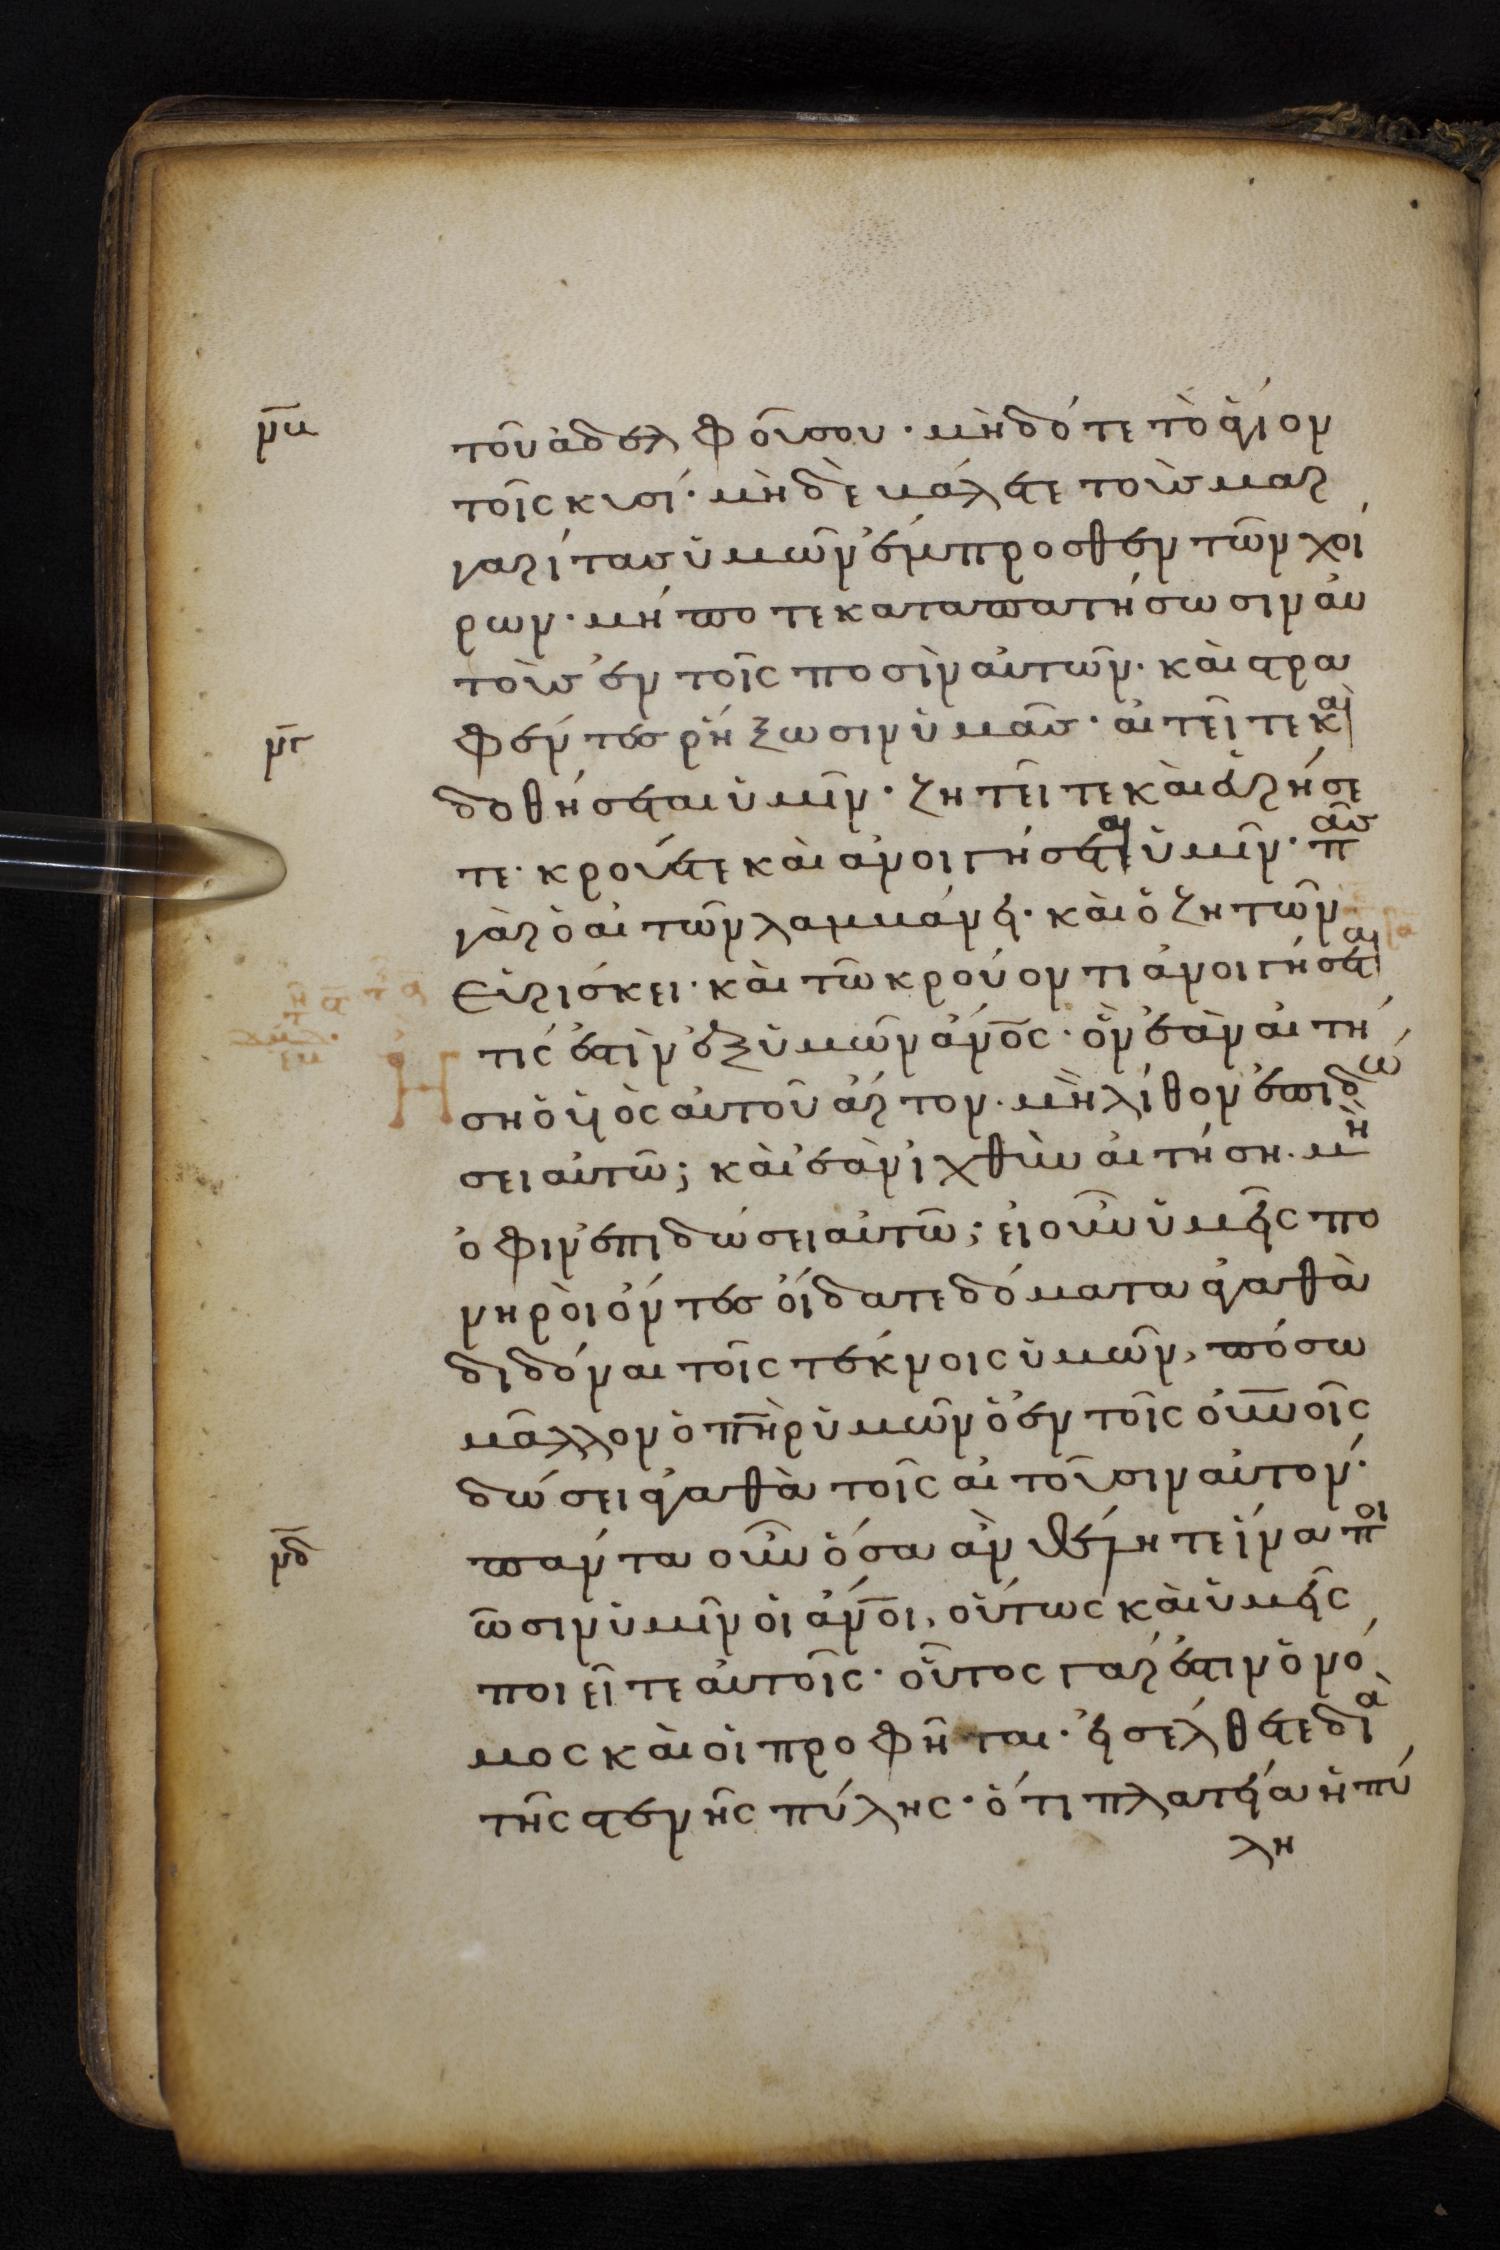 νβ
τοῦ ἀδελφοῦ σου· μὴ δότε τὸ ἅγιον
τοῖς κυσί· μὴδὲ βάλητε τοὺς μαρ
γαρίτας ὑμῶν ἔμπροσθεν τῶν χοί
ρων· μήποτε καταπατήσωσιν αὐ
τοὺς ἐν τοῖς ποσὶν αὐτῶν· καὶ στρα
νγ
φέντες ῥήξωσιν ὑμᾶς· αἰτεῖτε καὶ
δοθήσεται ὑμῖν· ζητεῖτε καὶ εὑρήσε
τε· κρούετε καὶ ἀνοιγήσεται ὑμῖν· πᾶς
γὰρ ὁ αἰτῶν λαμβάνει· καὶ ὁ ζητῶν
εὑρίσκει· καὶ τῶ κρούοντι ἀνοιγήσεται
τίς ἐστὶν ἐξ ὑμῶν ἄνος· ὃν ἐὰν αἰτή
ση ὁ υἱὸς αὐτοῦ ἄρτον· μὴ λίθον ἐπιδώ
σει αὐτῶ; καὶ ἐὰν ἰχθὺν αἰτήση· μὴ
ὄφιν ἐπιδώσει αὐτῶ; εἰ οὖν ὑμεῖς πο
νηροὶ ὄντες οἴδατε δόματα ἀγαθὰ
διδόναι τοῖς τέκνοις ὑμῶν, πόσω
μᾶλλον ὁ πὴρ ὑμῶν ὁ ἐν τοῖς οὐνοῖς
δώσει ἀγαθὰ τοῖς αἰτοῦσιν αὐτόν·
νδ
πάντα οὖν ὅσα ἂν θέλητε ἵνα ποι
ῶσιν ὑμῖν οἱ ἄνοι, οὕτως καὶ ὑμεῖς
ποιεῖτε αὐτοῖς· οὗτος γάρ ἐστιν ὁ νό
μος καὶ οἱ προφῆται· εἰσέλθετε διὰ
τῆς στενῆς πύλης· ὅτι πλατεῖα ἡ πύ
λη